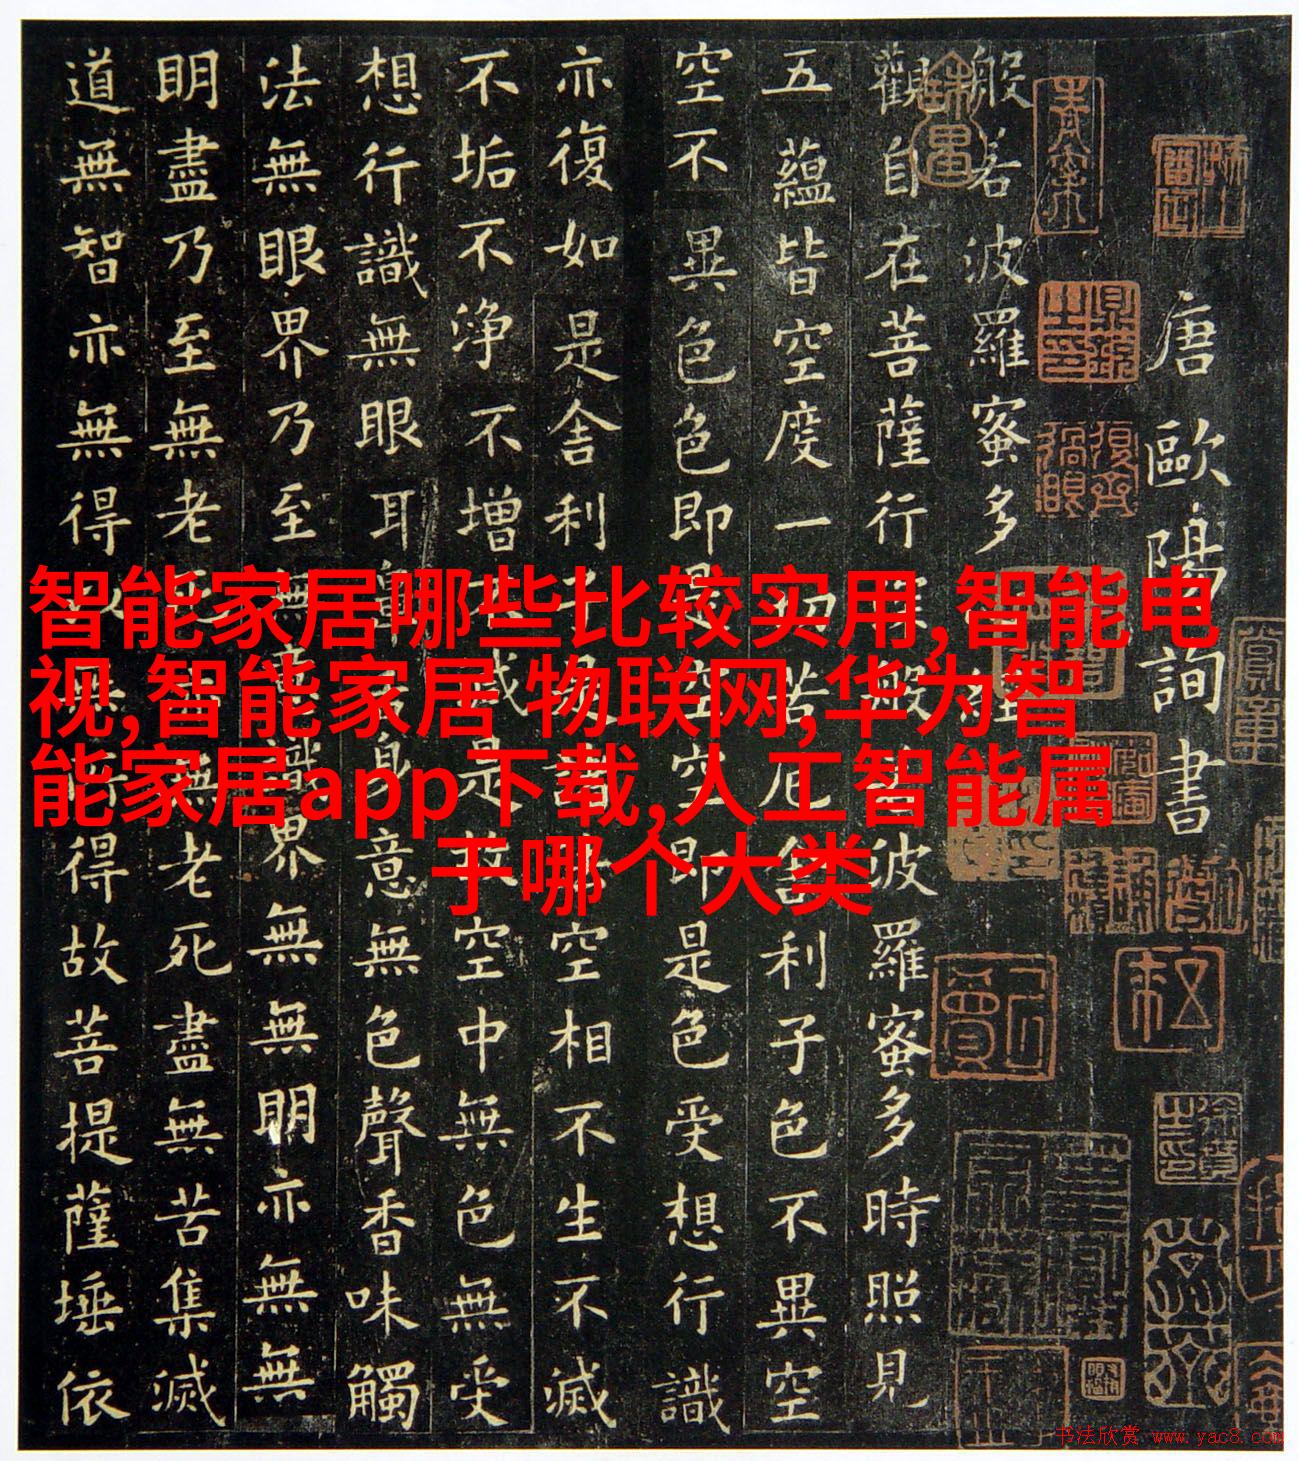 唐歐陽詢書
般若波羅蜜多心經
觀自在菩薩行深般若波羅蜜多時照見
五蘊皆空度一切苦厄舍利子色不異空
空不異色色即是空空即是色受想行識
亦復如是舍利子是諸法空相不生不滅
不垢不淨不增不減是故空中無色無受
想行識無眼耳鼻舌身意無色聲香味觸
法無眼界乃至無意識界無無明亦無無
明盡乃至無老死亦無老死盡無苦集滅
道無智亦無得以無所得故菩提薩埵依
智能家居哪些比较实用,智能电
视,智能家居 物联网,华为智
能家居app下载,人工智能属
于哪个大类
书法欣赏 www.yac8.com